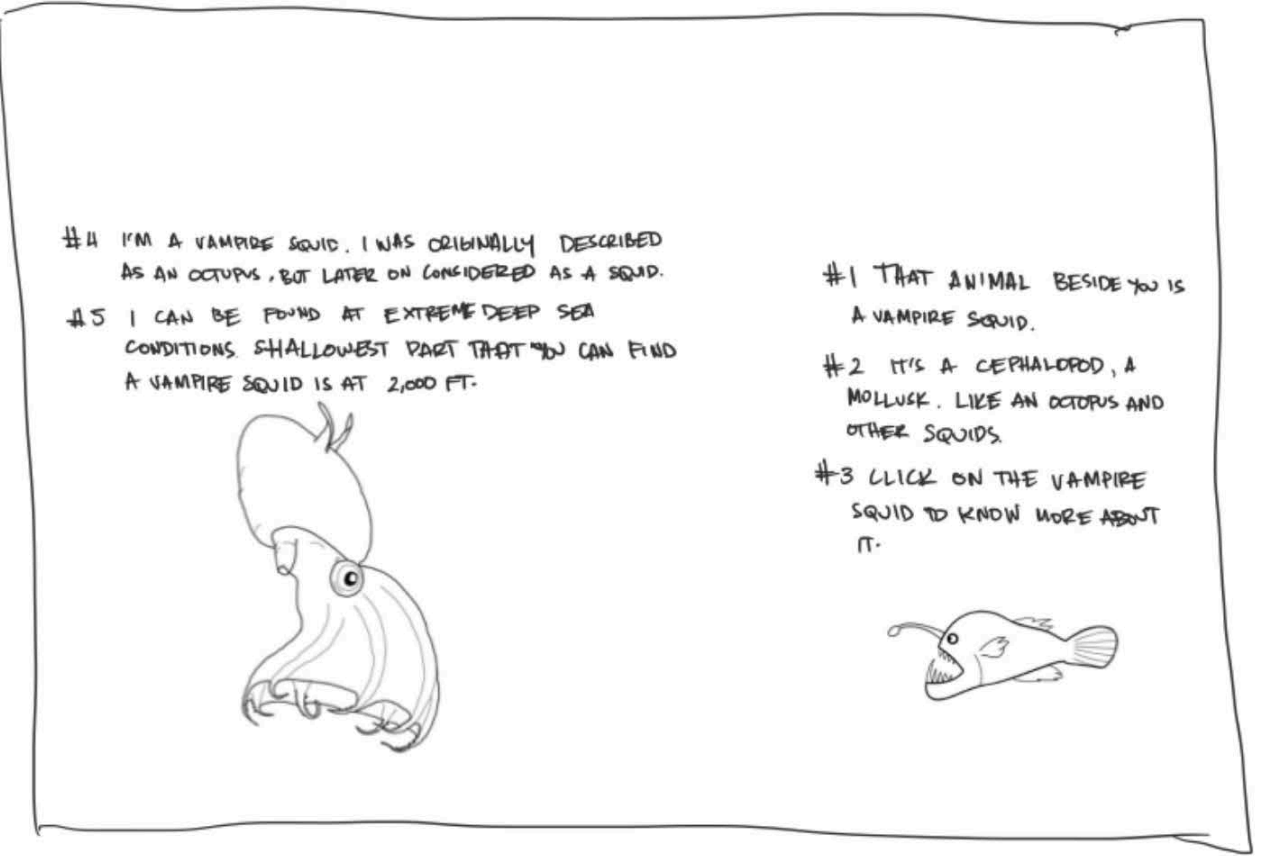 #4 I'M A VAMPIRE SQUID. I WAS ORIGINALLY DESCRIBED
AS AN OCTUPUS, BUT LATER ON CONSIDERED AS A SQUID.
#5 I CAN BE FOUND AT EXTREME DEEP SEA
CONDITIONS. SHALLOWEST PART THAT YOU CAN FIND
A VAMPIRE SQUID IS AT 2,000 FT.
#1 THAT ANIMAL BESIDE YOU IS
A VAMPIRE SQUID.
#2 IT'S A CEPHALOPOD, A
MOLLUSK. LIKE AN OCTOPUS AND
OTHER SQUIDS.
#3 CLICK ON THE VAMPIRE
SQUID TO KNOW MORE ABOUT
IT.